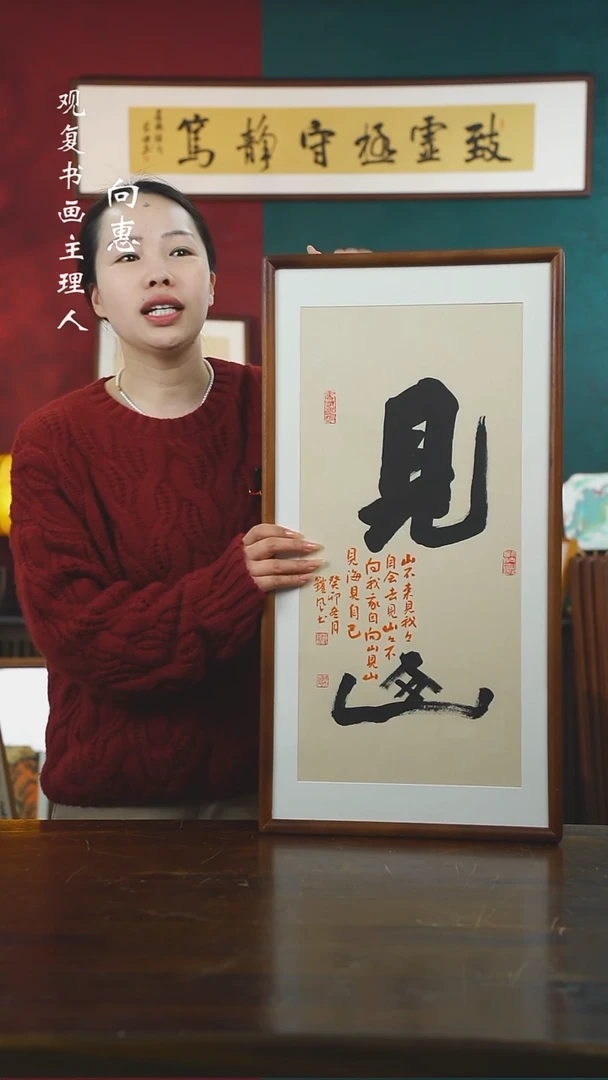 观复书画主理人
向惠
致虚極守静篤
見
山
山不来見我々
自会去見山々不
向我我自向山見山
見海見自己
癸卯冬月